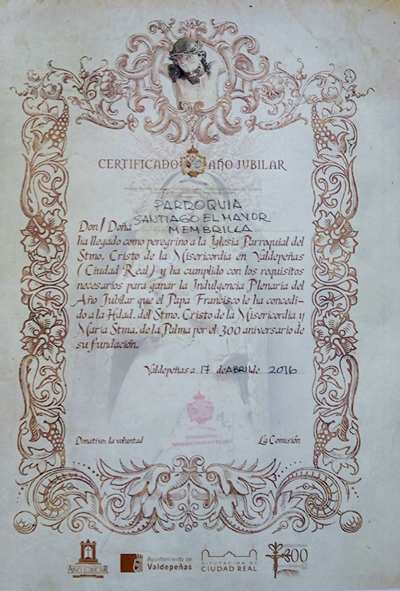 CERTIFICADO AÑO JUBILAR
PARROQUIA
SANTIAGO EL MAYOR
Don / Doña MEMBRILLA
ha llegado como peregrino a la Iglesia Parroquial del
Stmo. Cristo de la Misericordia en Valdepeñas
(Ciudad Real) y ha cumplido con los requisitos
necesarios para ganar la Indulgencia Plenaria del
Año Jubilar que el Papa Francisco le ha concedi-
do a la Hdad. del Stmo. Cristo de la Misericordia y
María Stma. de la Palma por el 300 aniversario de
su fundación.
Valdepeñas a 17 de ABRIL de 2016
Donativo: la voluntad
La Comisión
AÑO JUBILAR
Ayuntamiento de
Valdepeñas
DIPUTACIÓN DE
CIUDAD REAL
300